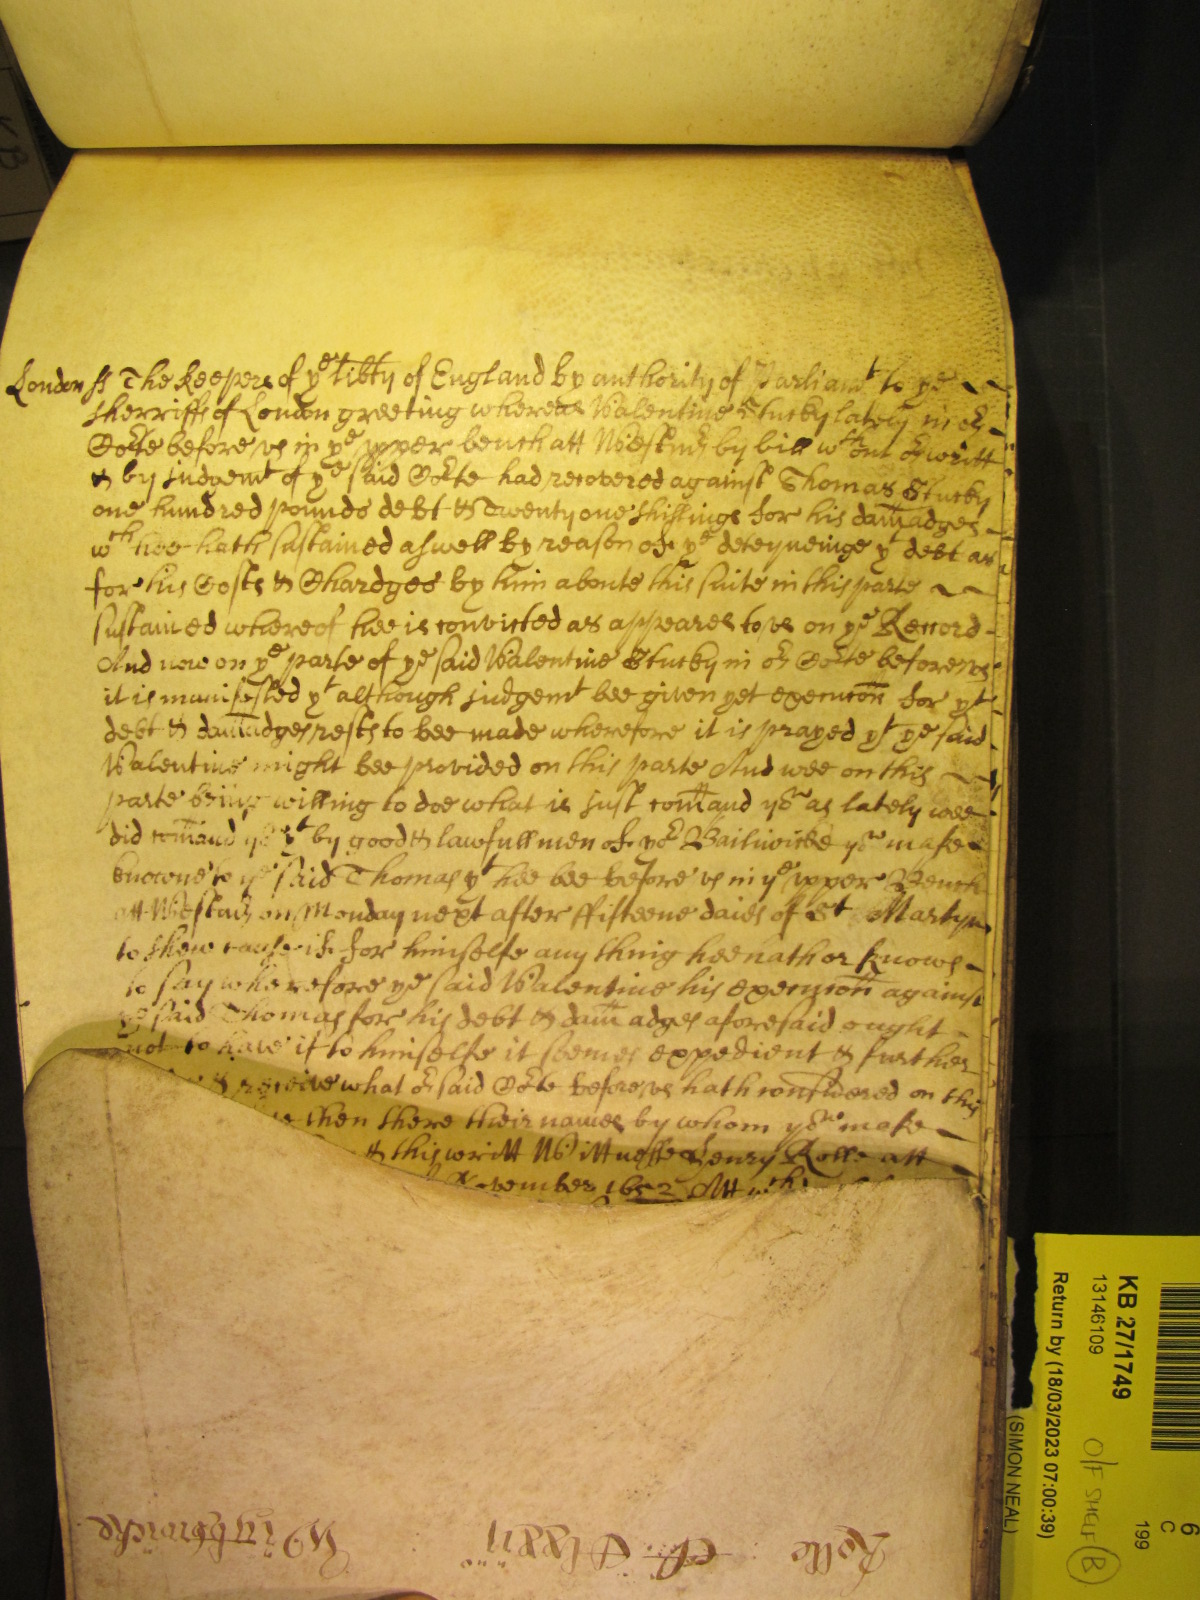 London ss The Keepers of ye libty of England by authority of Parliamt to ye
Sherriffs of London greeting whereas Valentine Stucky lately in or
Corte before us in ye upper bench att Westmr by bill wthout or writt
& by Judgemt of ye said Corte had recovered against Thomas Stucky
one hundred pounds debt & Twenty one shillings for his damadges
wch hee hath sustained aswell by reason of ye deteyneinge yt debt as
for his Costs & Chardges by him aboute his suite in this parte
sustained whereof hee is convicted as appeares to us on ye Record
And now on ye parte of ye said Valentine Stucky in or Corte before us
it is manifested yt although Judgemt bee given yet execucon for yt
debt & damadges rests to bee made wherefore it is prayed yt ye said
Valentine might bee provided on this parte And wee on this
parte being willing to doe what is Just comand you as lately wee
did comand you yt by good & lawfull men of yor Bailiwicke you make
knowne to ye said Thomas yt hee bee before us in ye upper Bench
att Westmr on Monday next after ffifteene daies of St Martyn
to shew cause if for himselfe any thing hee hath or knows
to say wherefore ye said Valentine his execucon against
ye said Thomas for his debt & damadges aforesaid ought
not to have if to himselfe it seemes expedient & further
& receive what or said Corte before us hath considered on this
then there their names by whom you make
& this writt Wittnesse Henry Rolle att
November 1652 Att wch
Rolle
Wightwicke
KB 27/1749
13146109
Return by (18/03/2023 07:00:39)
(SIMON NEAL)
O/F SHELF B
6
C
199
KB